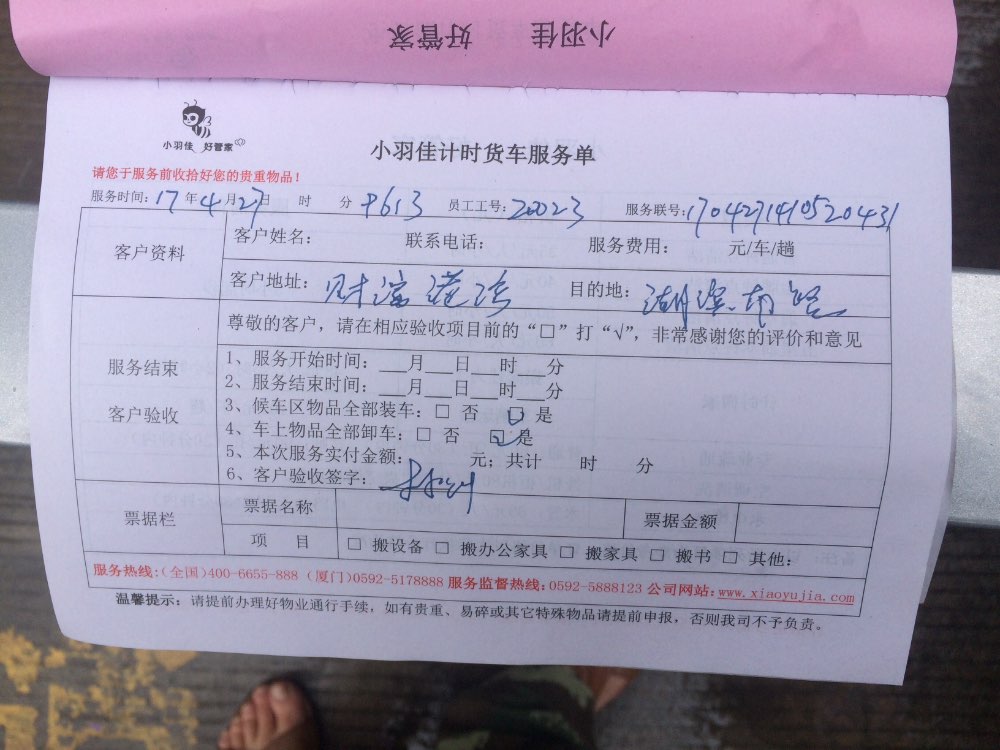 小羽佳 好管家
小羽佳 好管家
小羽佳计时货车服务单
请您于服务前收拾好您的贵重物品！
服务时间：17年4月27日 时 分 P613 员工工号：20023 服务联号：1704271410520431
客户资料
客户姓名： 联系电话： 服务费用： 元/车/趟
客户地址：财富港湾 目的地：湖滨南路
服务结束
客户验收
尊敬的客户，请在相应验收项目前的“□”打“√”，非常感谢您的评价和意见
1、服务开始时间：___月___日___时___分
2、服务结束时间：___月___日___时___分
3、候车区物品全部装车：□ 否 □ 是
4、车上物品全部卸车：□ 否 □ 是
5、本次服务实付金额： 元；共计 时 分
6、客户验收签字：
票据栏
票据名称 票据金额
项 目 □ 搬设备 □ 搬办公家具 □ 搬家具 □ 搬书 □ 其他：
服务热线：(全国)400-6655-888 (厦门)0592-5178888 服务监督热线：0592-5888123 公司网站：www.xiaoyujia.com
温馨提示：请提前办理好物业通行手续，如有贵重、易碎或其它特殊物品请提前申报，否则我司不予负责。